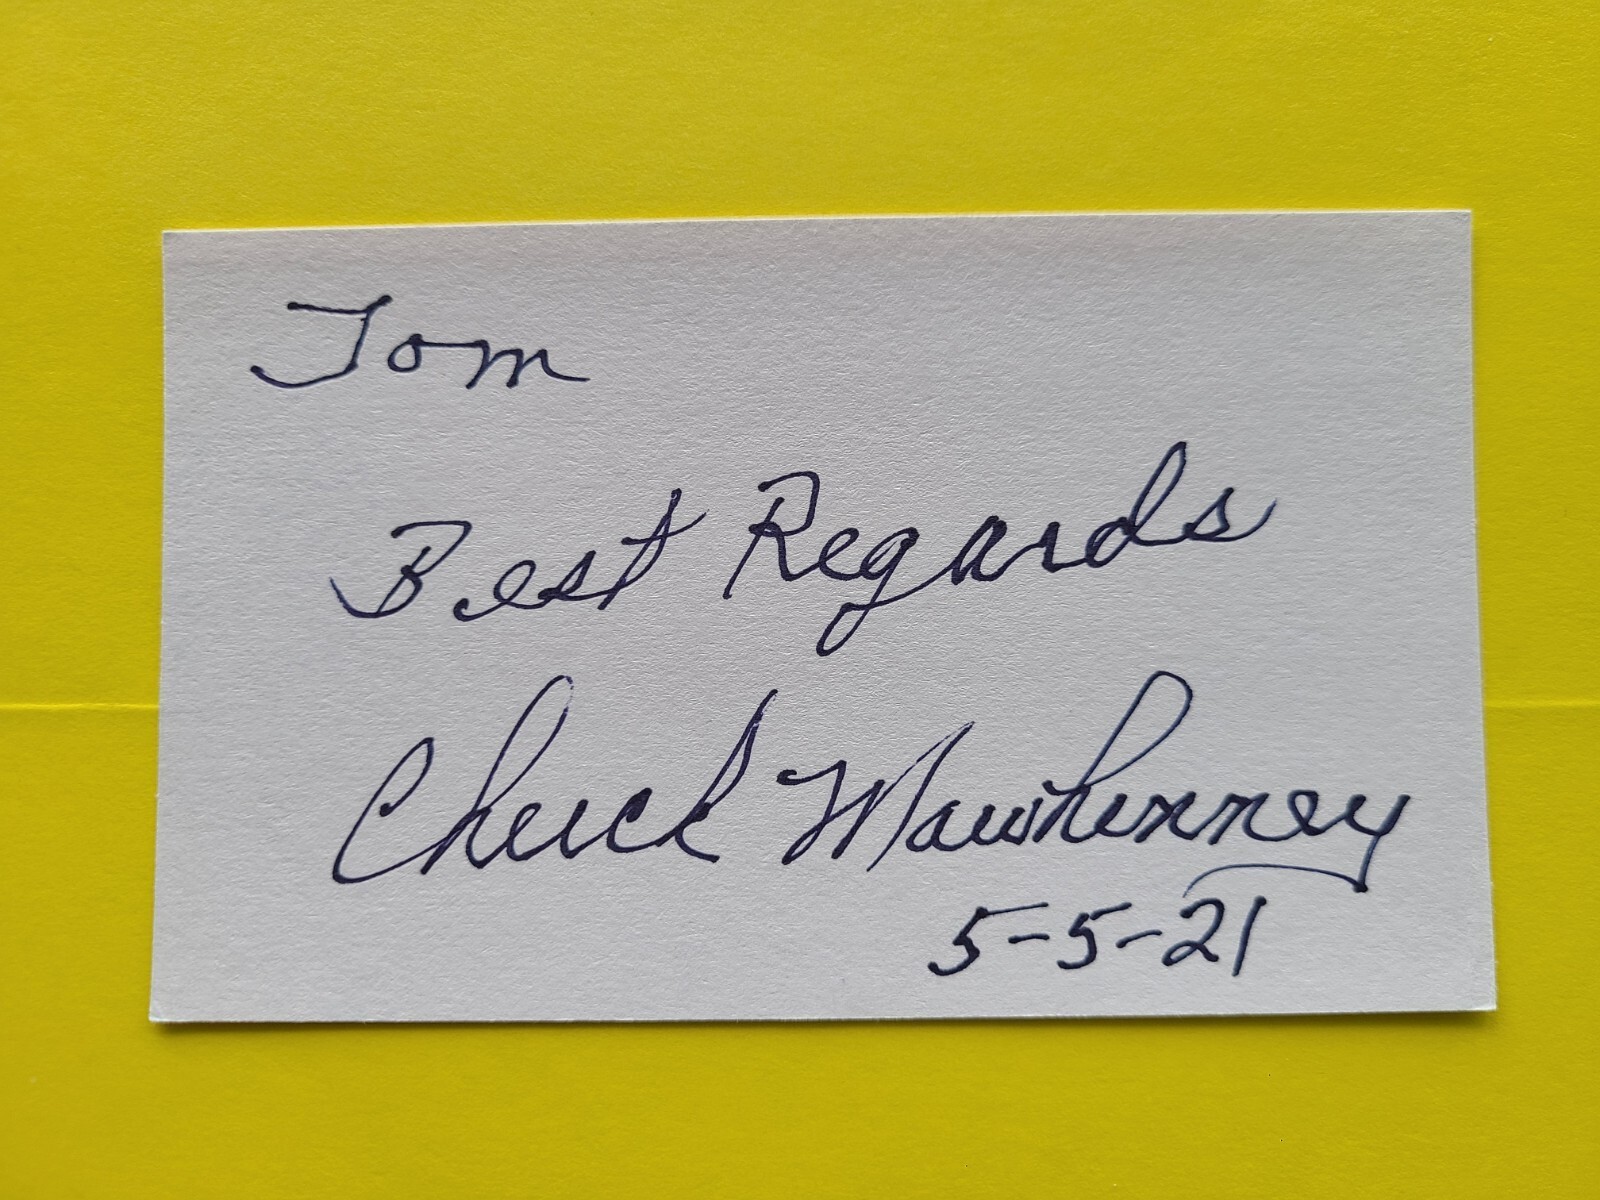 Tom
Best Regards
Chuck Mawhinney
5-5-21